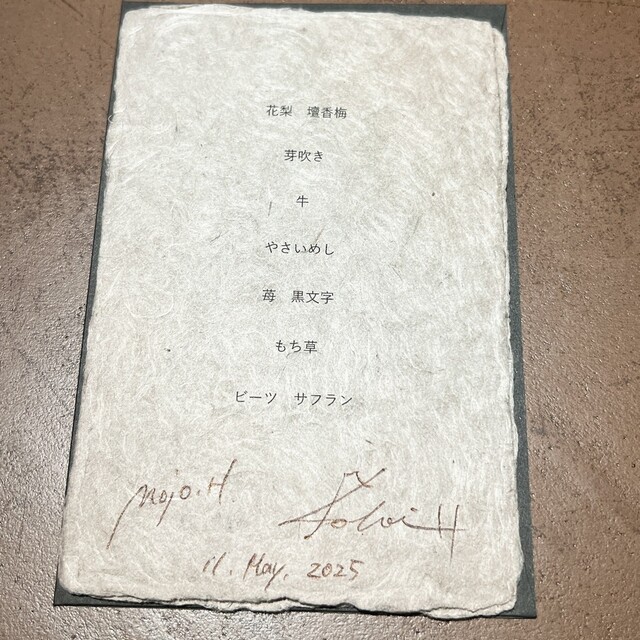 花梨　壇香梅
芽吹き
牛
やさいめし
苺　黒文字
もち草
ビーツ　サフラン
11. May. 2025